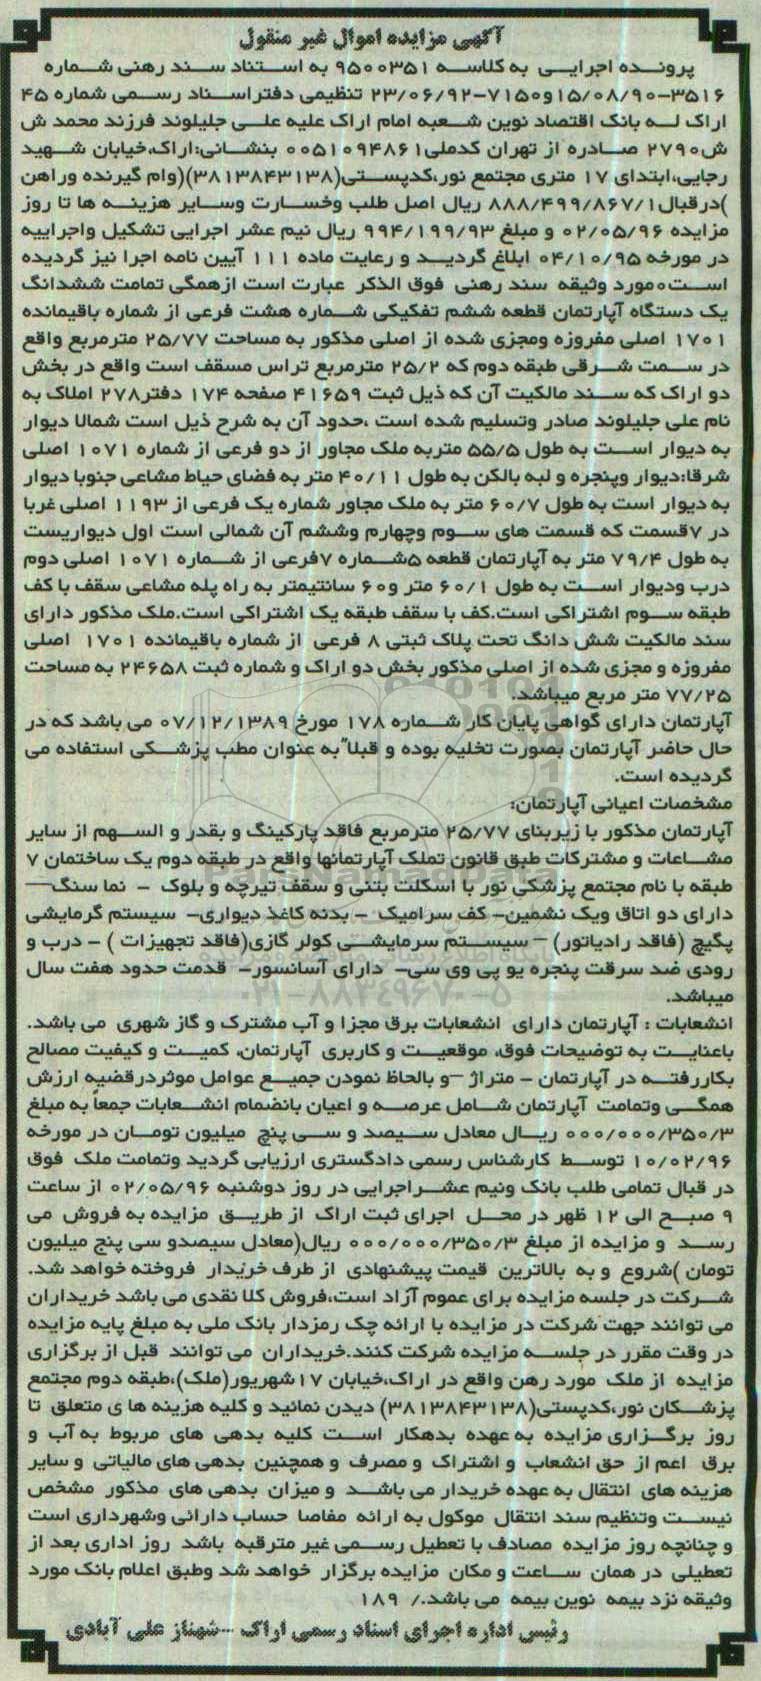 آگهی مزایده اموال غیر منقول
پرونده اجرایی به کلاسه ۹۵۰۰۳۵۱ به استناد سند رهنی شماره
۳۵۱۶-۱۵/۰۸/۹۰و۷۱۵۰-۲۳/۰۶/۹۲ تنظیمی دفتراسناد رسمی شماره ۴۵
اراک له بانک اقتصاد نوین شعبه امام اراک علیه علی جلیلوند فرزند محمد ش
ش۲۷۹۰ صادره از تهران کدملی۰۰۵۱۰۹۴۸۶۱ بنشانی:اراک،خیابان شهید
رجایی،ابتدای ۱۷ متری مجتمع نور،کدپستی(۳۸۱۳۸۴۳۱۳۸)(وام گیرنده وراهن
)درقبال۸۸۸/۴۹۹/۸۶۷/۱ ریال اصل طلب وخسارت وسایر هزینه ها تا روز
مزایده ۰۲/۰۵/۹۶ و مبلغ ۹۹۴/۱۹۹/۹۳ ریال نیم عشر اجرایی تشکیل واجراییه
در مورخه ۰۴/۱۰/۹۵ ابلاغ گردید و رعایت ماده ۱۱۱ آیین نامه اجرا نیز گردیده
است۰مورد وثیقه سند رهنی فوق الذکر عبارت است ازهمگی تمامت ششدانگ
یک دستگاه آپارتمان قطعه ششم تفکیکی شماره هشت فرعی از شماره باقیمانده
۱۷۰۱ اصلی مفروزه ومجزی شده از اصلی مذکور به مساحت ۲۵/۷۷ مترمربع واقع
در سمت شرقی طبقه دوم که ۲۵/۲ مترمربع تراس مسقف است واقع در بخش
دو اراک که سند مالکیت آن که ذیل ثبت ۴۱۶۵۹ صفحه ۱۷۴ دفتر۲۷۸ املاک به
نام علی جلیلوند صادر وتسلیم شده است ،حدود آن به شرح ذیل است شمالا دیوار
به دیوار است به طول ۵۵/۵ متربه ملک مجاور از دو فرعی از شماره ۱۰۷۱ اصلی
شرقا:دیوار وپنجره و لبه بالکن به طول ۴۰/۱۱ متر به فضای حیاط مشاعی جنوبا دیوار
به دیوار است به طول ۶۰/۷ متر به ملک مجاور شماره یک فرعی از ۱۱۹۳ اصلی غربا
در ۷قسمت که قسمت های سوم وچهارم وششم آن شمالی است اول دیواریست
به طول ۷۹/۴ متر به آپارتمان قطعه ۵شماره ۷فرعی از شماره ۱۰۷۱ اصلی دوم
درب ودیوار است به طول ۶۰/۱ متر و۶۰ سانتیمتر به راه پله مشاعی سقف با کف
طبقه سوم اشتراکی است.کف با سقف طبقه یک اشتراکی است.ملک مذکور دارای
سند مالکیت شش دانگ تحت پلاک ثبتی ۸ فرعی از شماره باقیمانده ۱۷۰۱ اصلی
مفروزه و مجزی شده از اصلی مذکور بخش دو اراک و شماره ثبت ۲۴۶۵۸ به مساحت
۷۷/۲۵ متر مربع میباشد.
آپارتمان دارای گواهی پایان کار شماره ۱۷۸ مورخ ۰۷/۱۲/۱۳۸۹ می باشد که در
حال حاضر آپارتمان بصورت تخلیه بوده و قبلا"به عنوان مطب پزشکی استفاده می
گردیده است.
مشخصات اعیانی آپارتمان:
آپارتمان مذکور با زیربنای ۲۵/۷۷ مترمربع فاقد پارکینگ و بقدر و السهم از سایر
مشاعات و مشترکات طبق قانون تملک آپارتمانها واقع در طبقه دوم یک ساختمان ۷
طبقه با نام مجتمع پزشکی نور با اسکلت بتنی و سقف تیرچه و بلوک - نما سنگ-
دارای دو اتاق ویک نشمین- کف سرامیک - بدنه کاغذ دیواری- سیستم گرمایشی
پکیج (فاقد رادیاتور) - سیستم سرمایشی کولر گازی(فاقد تجهیزات ) - درب و
رودی ضد سرقت پنجره یو پی وی سی- دارای آسانسور- قدمت حدود هفت سال
میباشد.
انشعابات : آپارتمان دارای انشعابات برق مجزا و آب مشترک و گاز شهری می باشد.
باعنایت به توضیحات فوق، موقعیت و کاربری آپارتمان، کمیت و کیفیت مصالح
بکاررفته در آپارتمان - متراژ -و بالحاظ نمودن جمیع عوامل موثردرقضیه ارزش
همگی وتمامت آپارتمان شامل عرصه و اعیان بانضمام انشعابات جمعاً به مبلغ
۰۰۰/۰۰۰/۳۵۰/۳ ریال معادل سیصد و سی پنج میلیون تومان در مورخه
۱۰/۰۲/۹۶ توسط کارشناس رسمی دادگستری ارزیابی گردید وتمامت ملک فوق
در قبال تمامی طلب بانک ونیم عشراجرایی در روز دوشنبه ۰۲/۰۵/۹۶ از ساعت
۹ صبح الی ۱۲ ظهر در محل اجرای ثبت اراک از طریق مزایده به فروش می
رسد و مزایده از مبلغ ۰۰۰/۰۰۰/۳۵۰/۳ ریال(معادل سیصدو سی پنج میلیون
تومان )شروع و به بالاترین قیمت پیشنهادی از طرف خریدار فروخته خواهد شد.
شرکت در جلسه مزایده برای عموم آزاد است،فروش کلا نقدی می باشد خریداران
می توانند جهت شرکت در مزایده با ارائه چک رمزدار بانک ملی به مبلغ پایه مزایده
در وقت مقرر در جلسه مزایده شرکت کنند.خریداران می توانند قبل از برگزاری
مزایده از ملک مورد رهن واقع در اراک،خیابان ۱۷شهریور(ملک)،طبقه دوم مجتمع
پزشکان نور،کدپستی(۳۸۱۳۸۴۳۱۳۸) دیدن نمائید و کلیه هزینه ها ی متعلق تا
روز برگزاری مزایده به عهده بدهکار است کلیه بدهی های مربوط به آب و
برق اعم از حق انشعاب و اشتراک و مصرف و همچنین بدهی های مالیاتی و سایر
هزینه های انتقال به عهده خریدار می باشد و میزان بدهی های مذکور مشخص
نیست وتنظیم سند انتقال موکول به ارائه مفاصا حساب دارائی وشهرداری است
و چنانچه روز مزایده مصادف با تعطیل رسمی غیر مترقبه باشد روز اداری بعد از
تعطیلی در همان ساعت و مکان مزایده برگزار خواهد شد وطبق اعلام بانک مورد
وثیقه نزد بیمه نوین بیمه می باشد./ ۱۸۹
رئیس اداره اجرای اسناد رسمی اراک -شهناز علی آبادی
ParsNamadData
۰۲۱-۸۸۳۴۹۶۷۰-۵